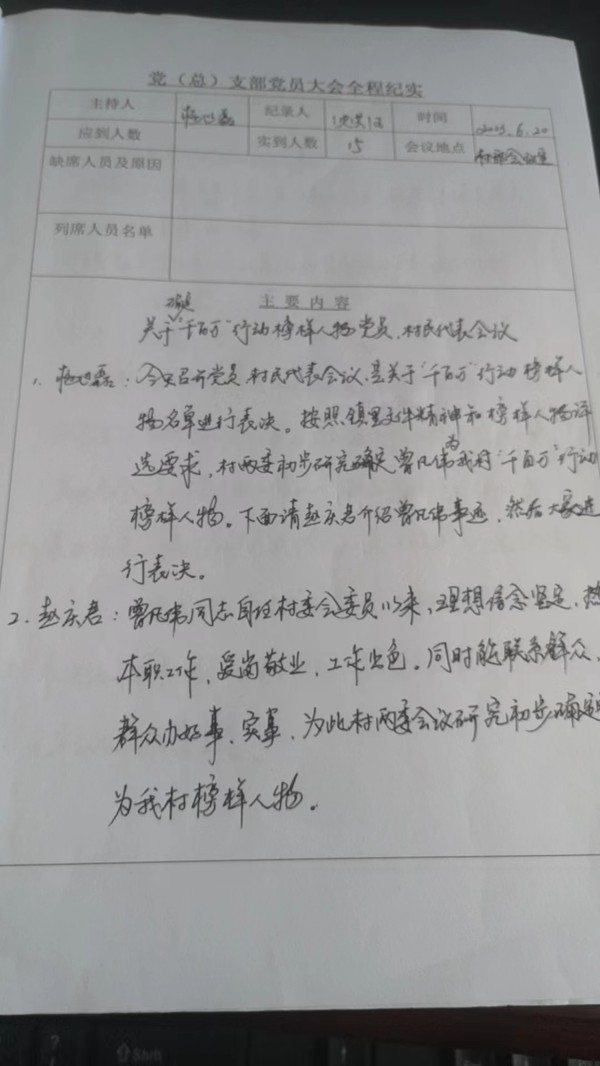 党（总）支部党员大会全程纪实
主持人 纪录人 时间 2023.6.20
应到人数 实到人数 15 会议地点 村部会议室
缺席人员及原因
列席人员名单
主要内容
关于"千百万"行动榜样人物党员、村民代表会议
1. 今天召开党员、村民代表会议,是关于"千百万"行动榜样人
物名单进行表决。按照镇里文件精神和榜样人物评
选要求,村两委初步研究确定曾凡伟为我村"千百万"行动
榜样人物。下面请赵庆君介绍曾凡伟事迹,然后大家进
行表决。
2. 赵庆君:曾凡伟同志自任村委会委员以来,理想信念坚定,热
本职工作,爱岗敬业,工作出色。同时能联系群众,
群众办好事、实事,为此村两委会议研究初步确定
为我村榜样人物。
Shift